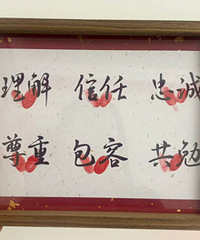 理解 信任 忠诚
尊重 包容 共勉